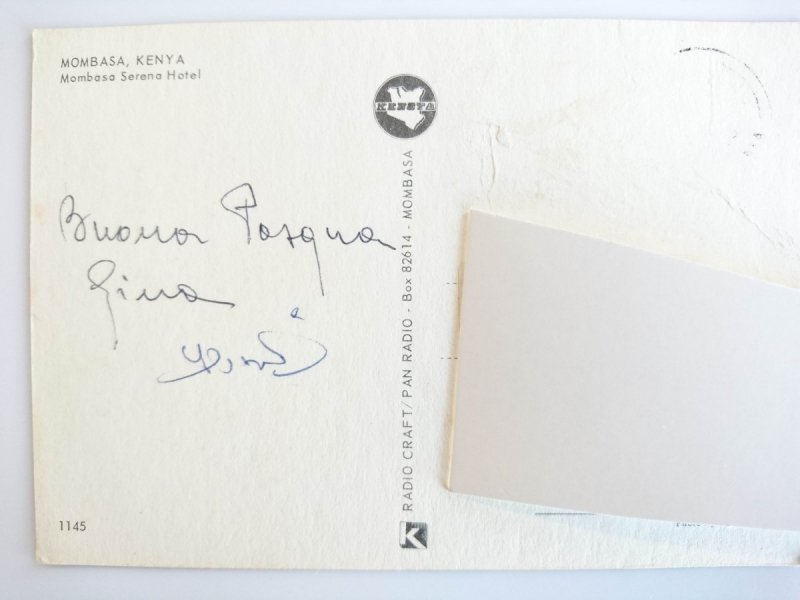 MOMBASA, KENYA
Mombasa Serena Hotel
KENSTA
Buona Pasqua
Gina
RADIO CRAFT/PAN RADIO - Box 82614 - MOMBASA
1145
K